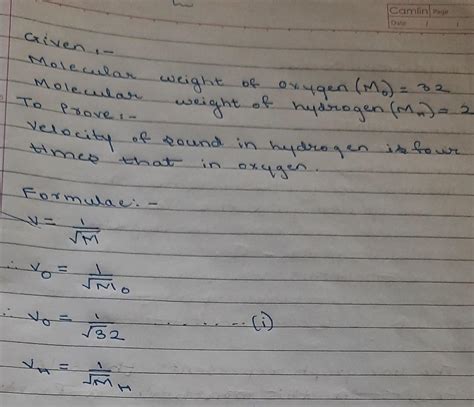 Camlin Page
Date / /
Given :-
Molecular weight of oxygen (M₀) = 32
Molecular weight of hydrogen (Mₕ) = 2
To Prove :-
Velocity of sound in hydrogen is four
times that in oxygen.
Formulae :-
v = 1/√M
∴ v₀ = 1/√M₀
∴ v₀ = 1/√32 .......... (i)
vₕ = 1/√Mₕ